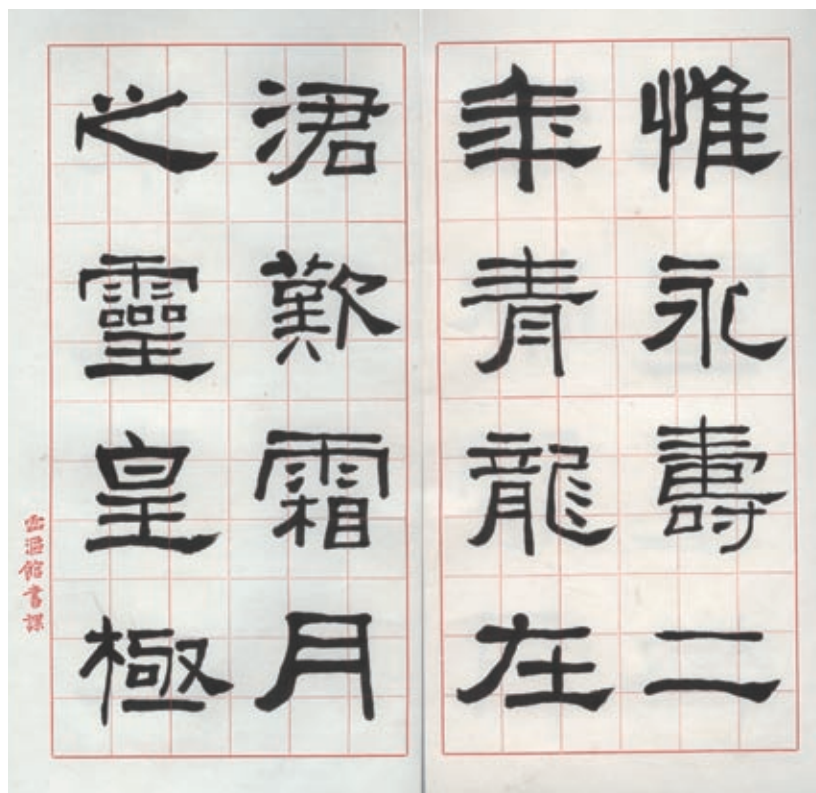 惟永壽二
年青龍在
涒歎霜月
之靈皇極
館書課